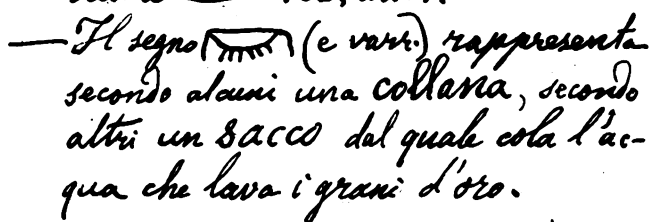 — Il segno 𓋞 (e varr.) rappresenta
secondo alcuni una collana, secondo
altri un sacco dal quale cola l'ac-
qua che lava i grani d'oro.